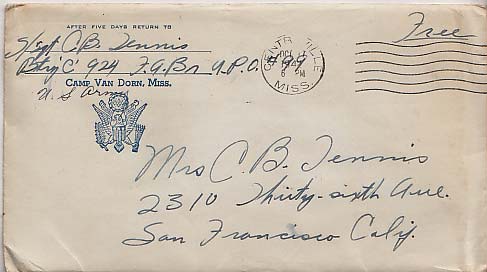 AFTER FIVE DAYS RETURN TO
S/Sgt C.B. Tennis
Btry "C" 924 F.A.Bn A.P.O. #99
CAMP VAN DORN, MISS.
U.S. Army
Free
CENTREVILLE
OCT
1943
6 PM
MISS.
Mrs C.B. Tennis
2310 Thirty-sixth Ave.
San Francisco Calif.